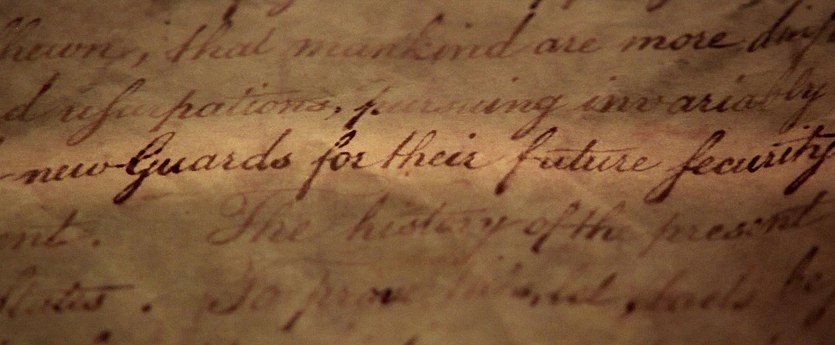 hewn, that mankind are more disp
d uſurpations, pursuing invariably
new Guards for their future ſecurity
ent. The history of the present
States. To prove this, let Facts be